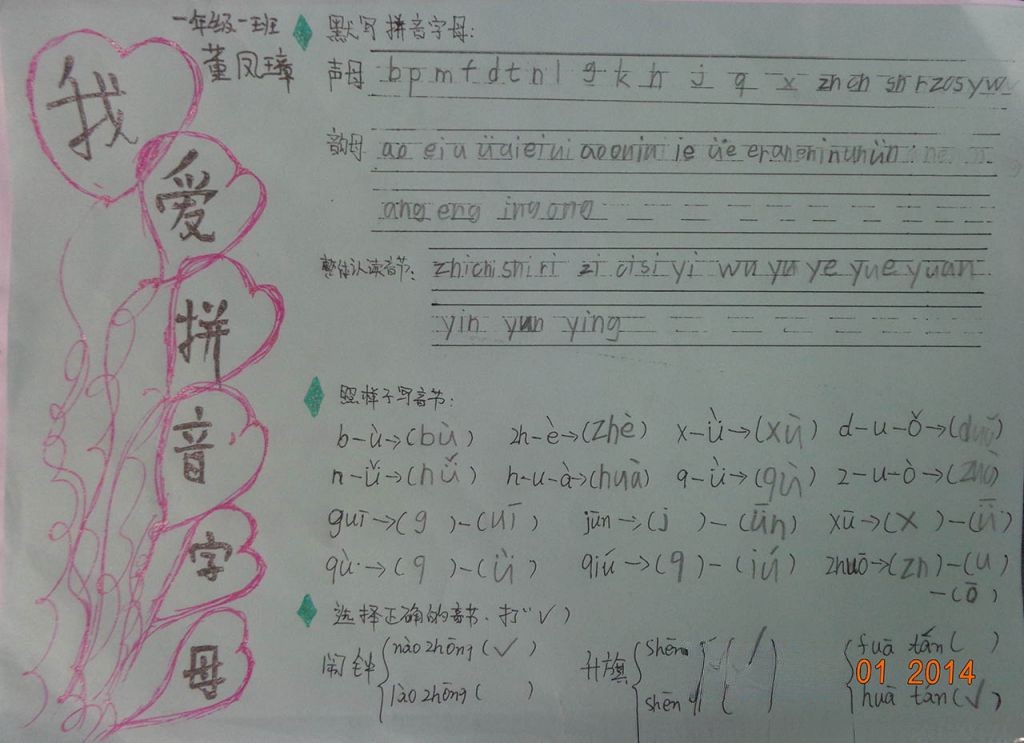 一年级一班
董凤璋
我爱拼音字母
默写拼音字母:
声母 b p m f d t n l g k h j q x zh ch sh r z c s y w
韵母 a o e i u ü ai ei ui ao ou iu ie üe er an en in un ün
ang eng ing ong
整体认读音节: zhi chi shi ri zi ci si yi wu yu ye yue yuan
yin yun ying
照样子写音节:
b-ù→(bù) zh-è→(zhè) x-ù→(xù) d-u-ǒ→(duǒ)
n-ǚ→(nǚ) h-u-à→(huà) q-ù→(qù) z-u-ò→(zuò)
guī→(g)-(uī) jūn→(j)-(ǖn) xū→(x)-(ǖ)
qù→(q)-(ǜ) qiú→(q)-(iú) zhuō→(zh)-(u)
-(ō)
选择正确的音节,打"√"
闹钟 nào zhōng(√) 升旗 shēng qí(√) fuā tán( )
lào zhōng( ) shēn qí( ) huā tán(√)
01 2014